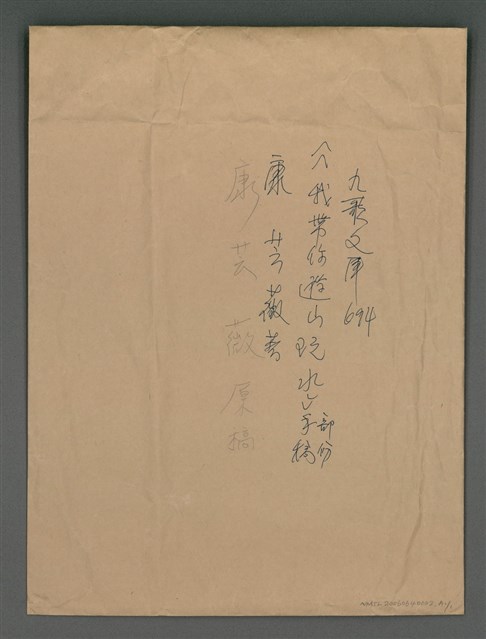 九歌文庫694
〈我帶你遊山玩水〉部份手稿
康芸薇著
康芸薇原稿